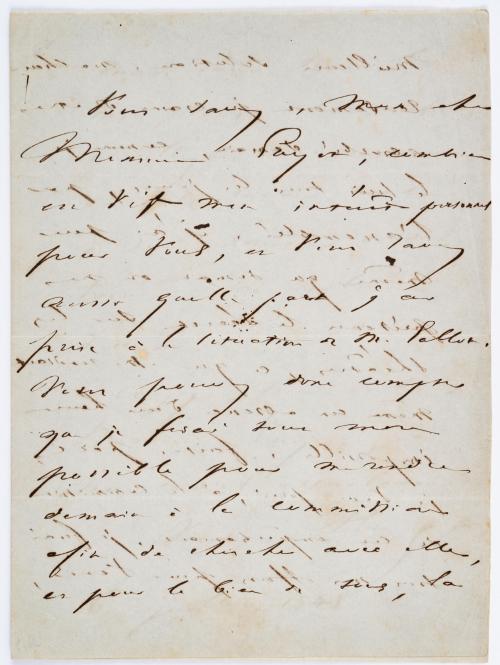 Vous savez, Mon cher
Monsieur, combien
est vif mon intérêt personnel
pour Vous, et Vous savez
aussi quelle part j'ai
prise à la situation de M.
Vous pouvez donc compter
que je ferai tout mon
possible pour me rendre
demain à la commission
afin de chercher avec elle,
et pour le bien de tous, la